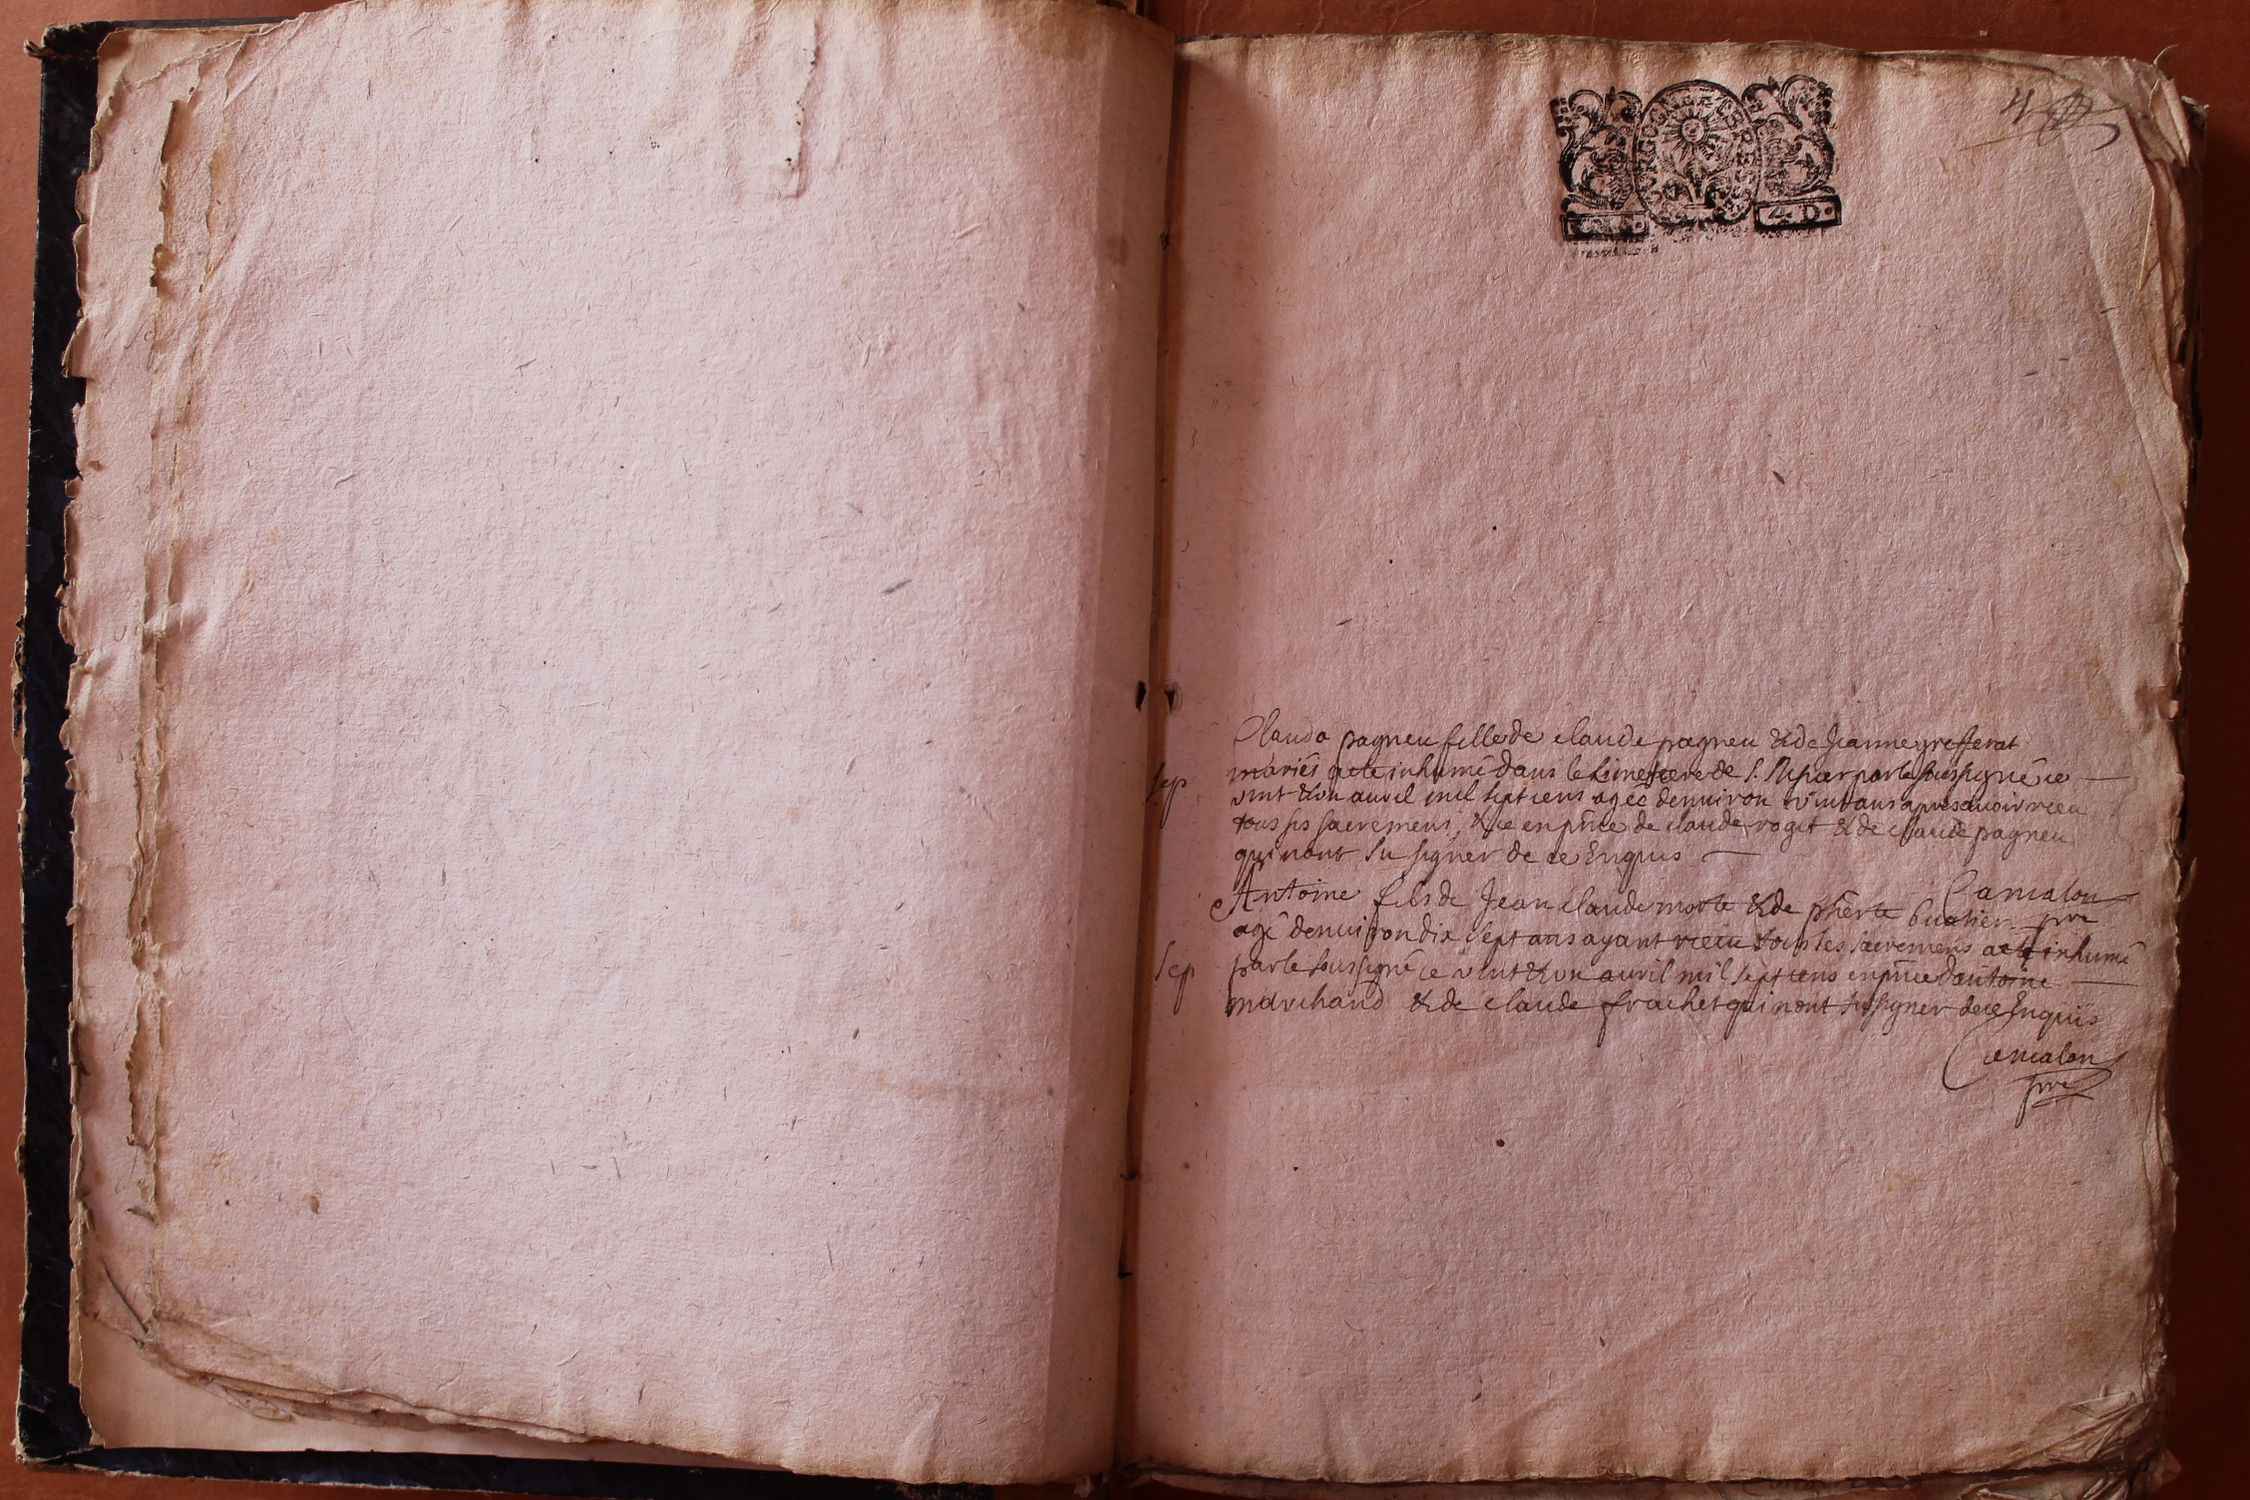 4
4 D.
Clauda pagneu fille de claude pagneu & de Jeanne grefferat
sep
mariés a ete inhumé dans le simetiere de S. par le soussigné ce
vint & un auvil mil sept cens agéé denuiron vint ans apres auoir receu
tous ses sacremens, & ce en pnce de claude roget & de claude pagneu
qui n'ont su signer de ce Enquis
Camalon
pre
Antoine fils de Jean claude morte & de pherte buatier
agé denuiron dix sept ans ayant receu tous les sacremens a ete inhumé
sep
par le soussigné ce vint & un auvil mil sept cens en pnce dantoine
marchand & de claude frachet qui nont su signer de ce Enquis
Camalon
pre